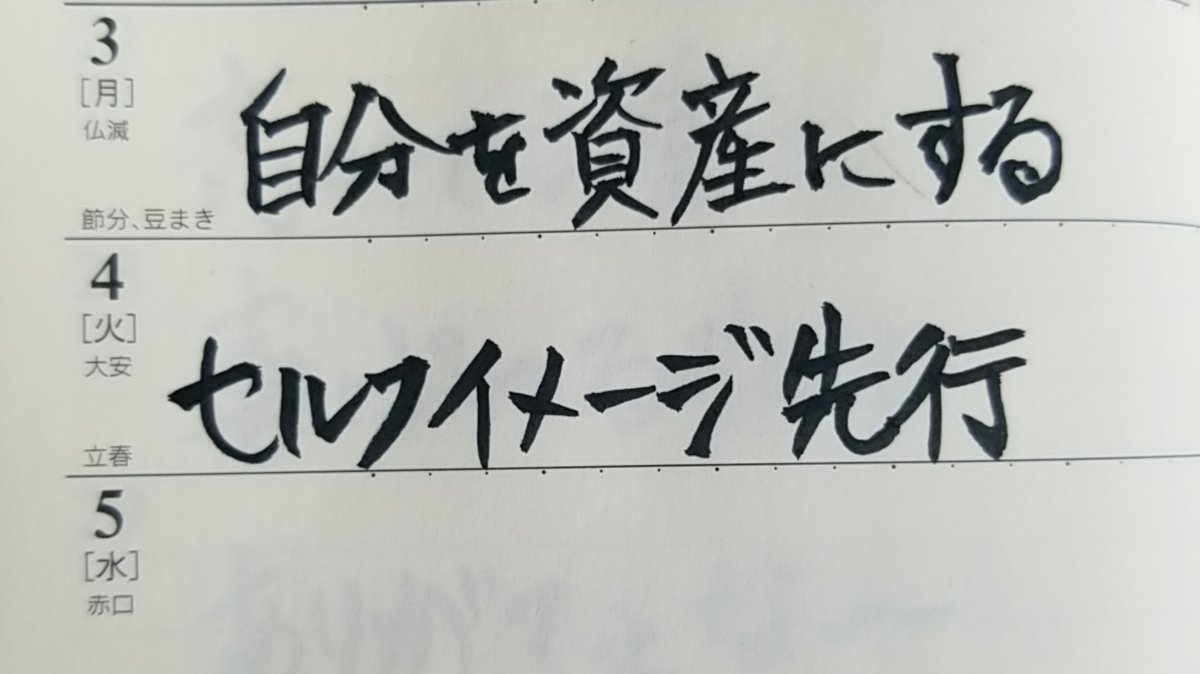 3
[月]
仏滅
自分を資産にする
節分、豆まき
4
[火]
大安
セルフイメージ先行
立春
5
[水]
赤口